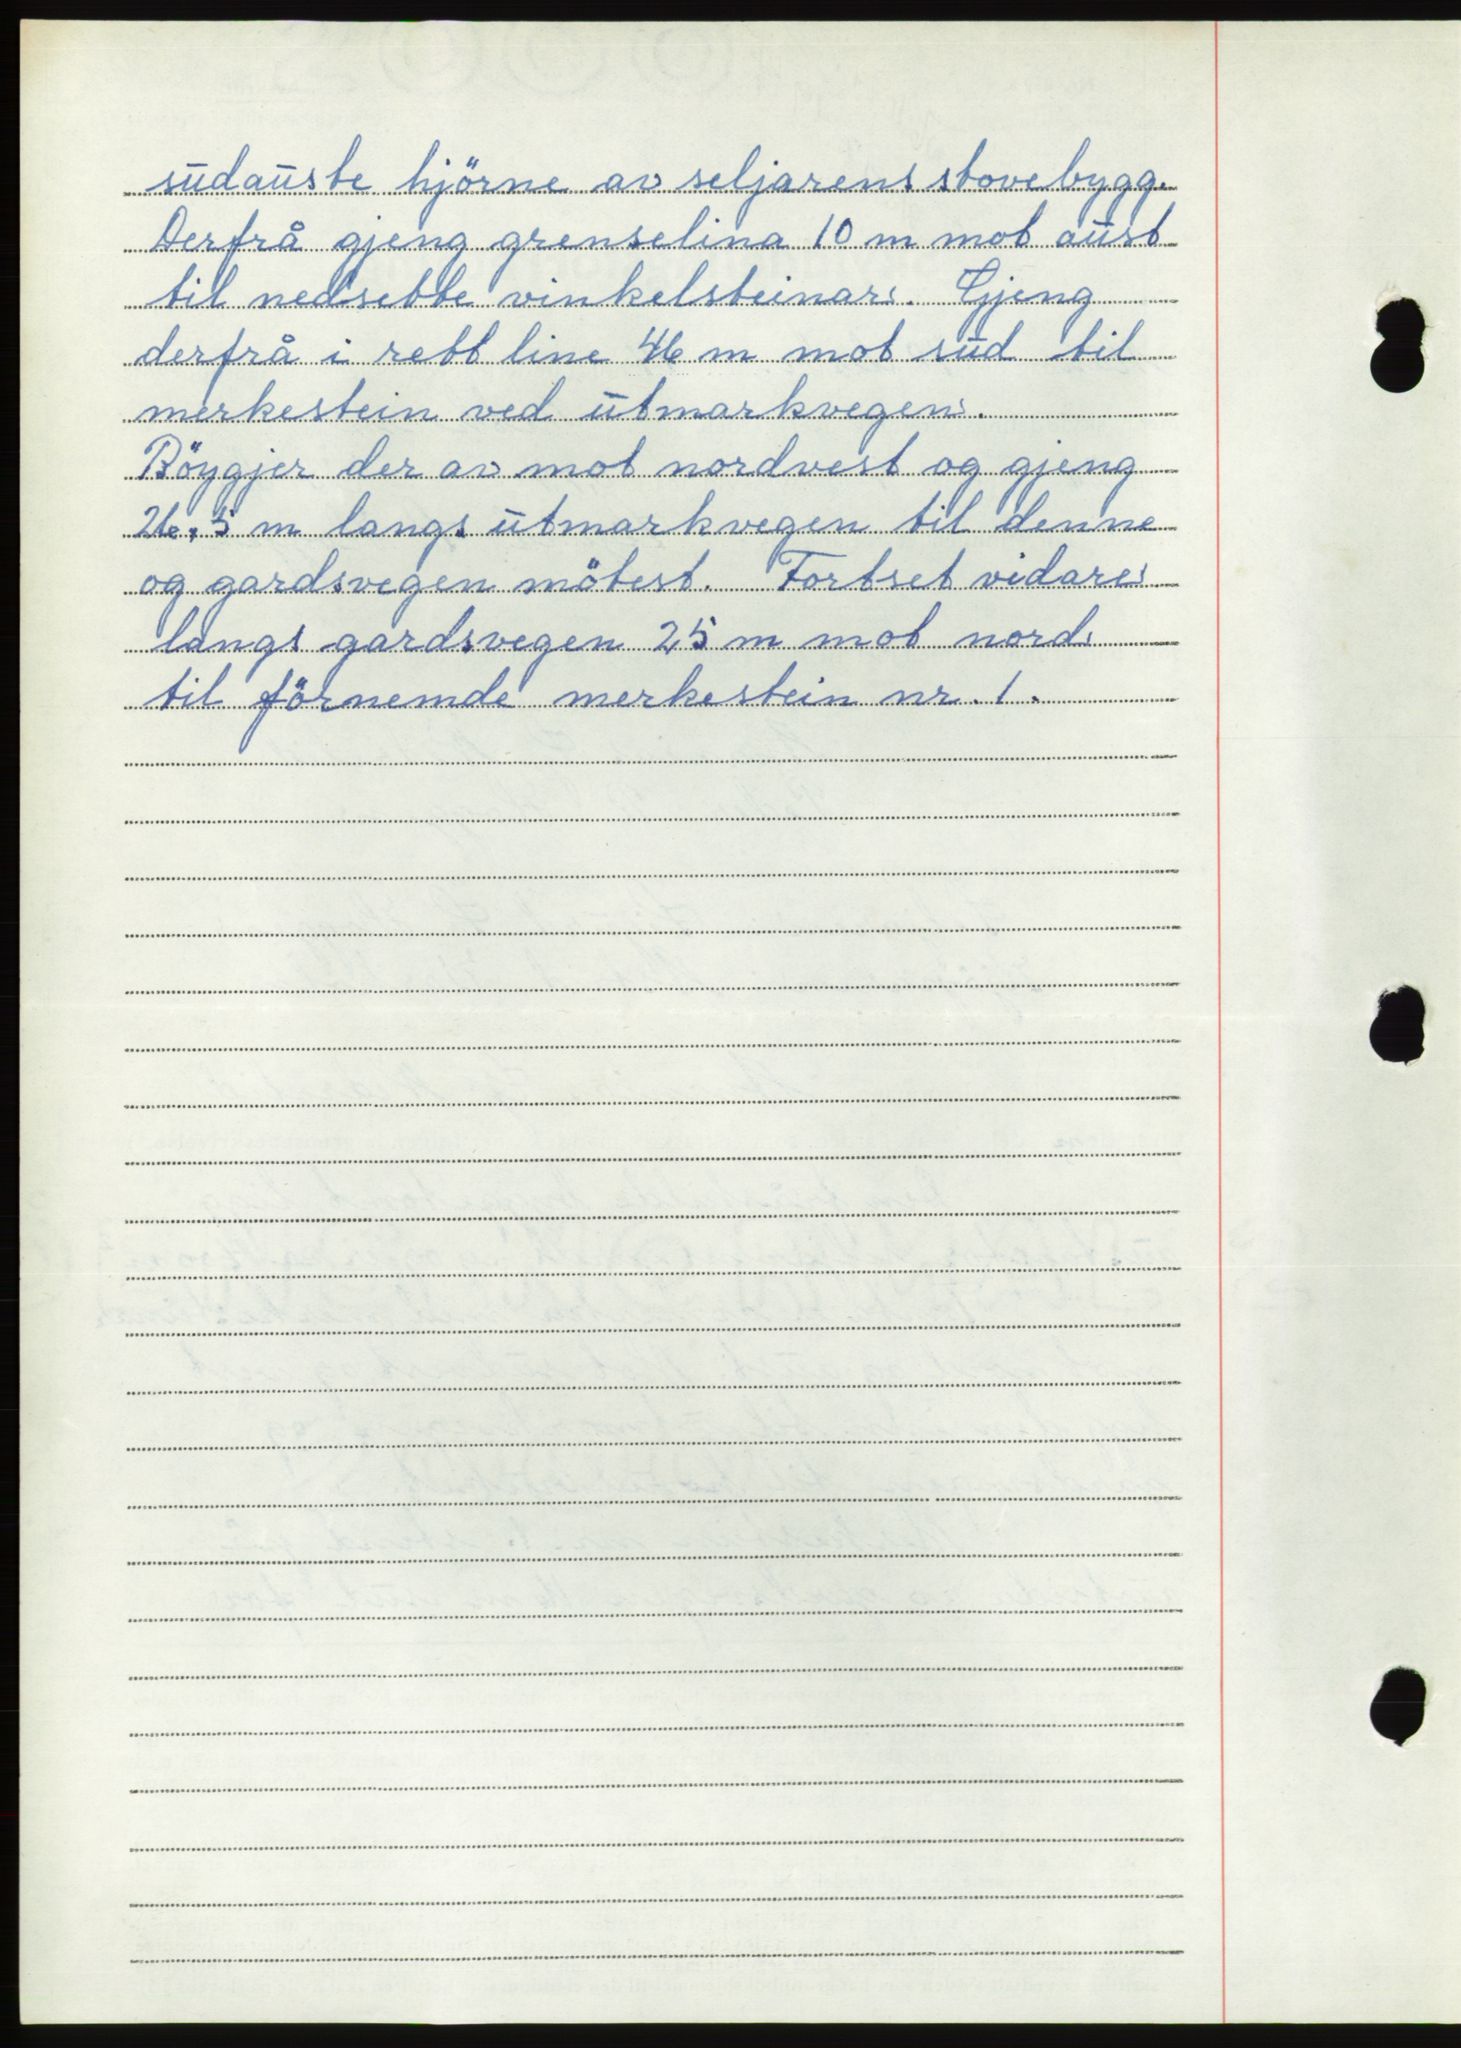 sūdaūste hjörne av seljarens stovebygg.
Derfrå gjeng grenselina 10 m mot aūst
til nedsette vinkelsteinar. Gjeng
derfrå i rett line 46 m mot sūd til
merkestein ved ūtmarkvegen.
Böygjer der av mot nordvest og gjeng
26,5 m langs ūtmarkvegen til denne
og gardsvegen mötest. Fortset vidare
langs gardsvegen 25 m mot nord
til förnemde merkestein nr. 1.